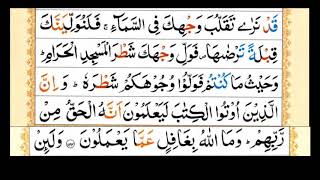 قَدْ نَرٰى تَقَلُّبَ وَجْهِكَ فِي السَّمَآءِ ۚ فَلَنُوَلِّيَنَّكَ
قِبْلَةً تَرْضٰىهَا ۪ فَوَلِّ وَجْهَكَ شَطْرَ الْمَسْجِدِ الْحَرَامِ ؕ
وَحَيْثُ مَا كُنْتُمْ فَوَلُّوْا وُجُوْهَكُمْ شَطْرَهٗ ؕ وَاِنَّ
الَّذِيْنَ اُوْتُوا الْكِتٰبَ لَيَعْلَمُوْنَ اَنَّهُ الْحَقُّ مِنْ
رَّبِّهِمْ ؕ وَمَا اللّٰهُ بِغَافِلٍ عَمَّا يَعْمَلُوْنَ ۝ وَلَئِنْ